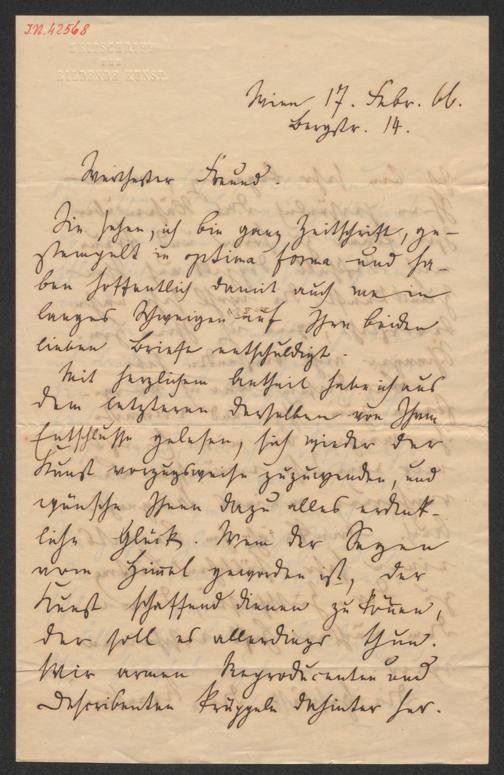 I.N. 42568
ZEITSCHRIFT
FÜR
BILDENDE KUNST.
Wien 17. Febr. 66.
Bergstr. 14.
Werthester Freund.
Sie sehen, ich bin ganz Zeitschrift, ge-
stempelt in optima forma und ha-
ben hoffentlich damit auch mein
langes Schweigen auf Ihre beiden
lieben Briefe entschuldigt.
Mit herzlichem Antheil habe ich aus
dem letzteren derselben von Ihrem
Entschlusse gelesen, sich wieder der
Kunst vorzugsweise zuzuwenden, und
wünsche Ihnen dazu alles erdenk-
liche Glück. Wem der Segen
vom Himmel geworden ist, der
Kunst schaffend dienen zu können,
der soll es allerdings thun.
Wir armen Reproducenten und
Describenten krüppeln dahinter her.